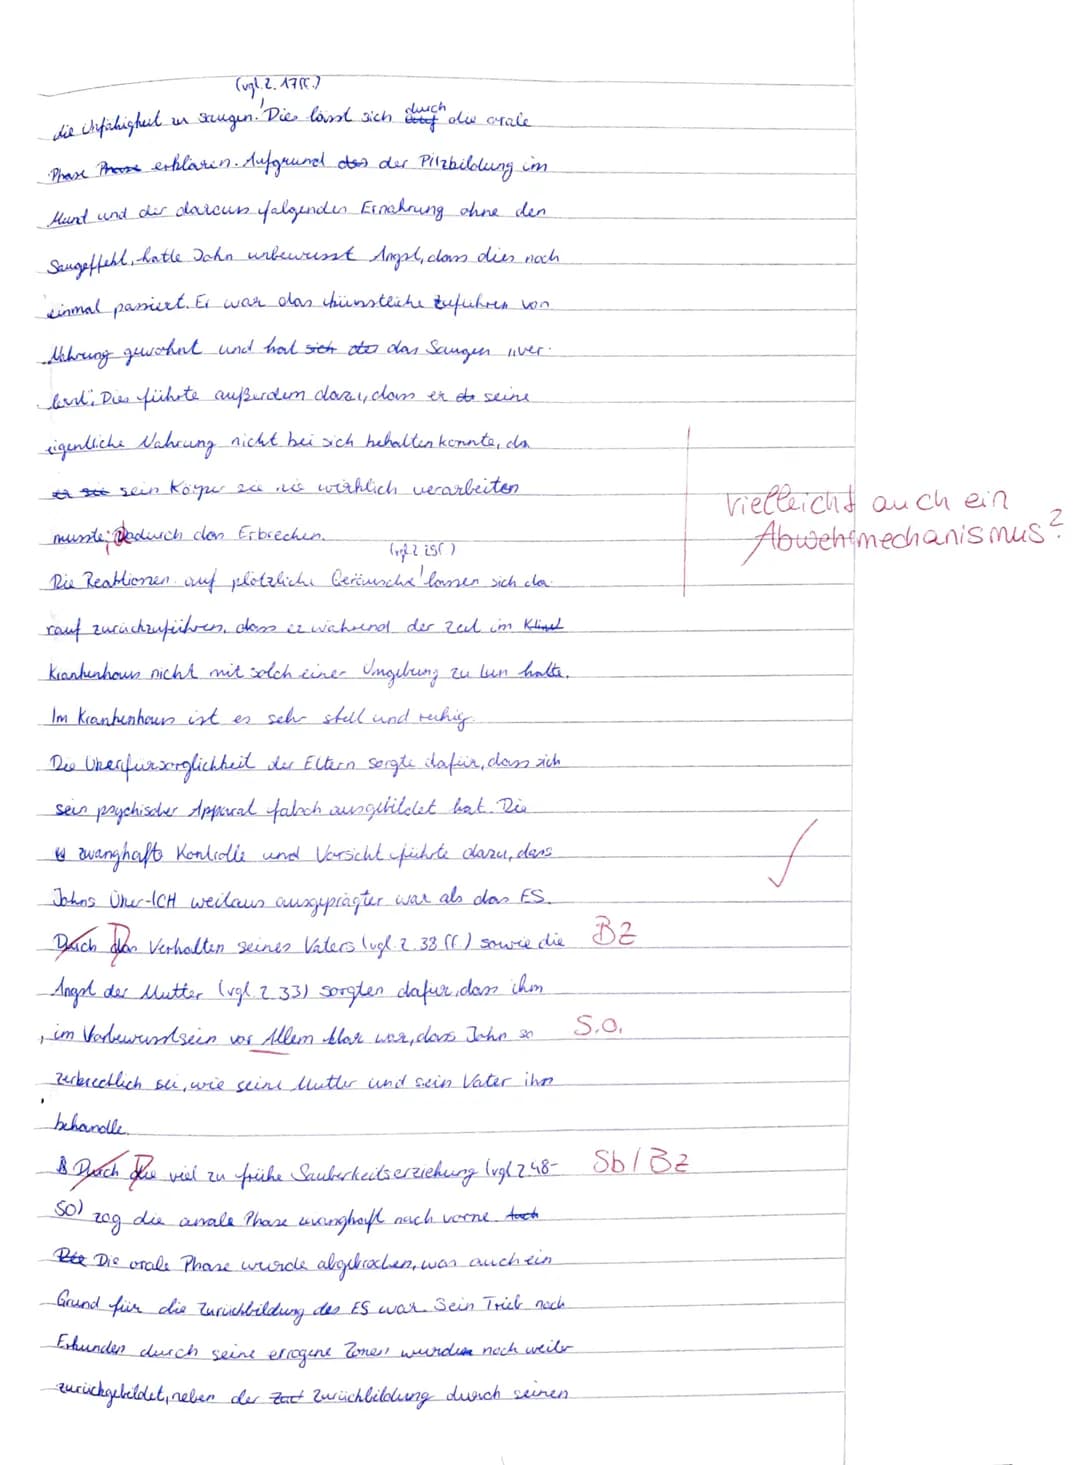 (vgl. Z. 17ff.)
die Unfähigkeit zu saugen. Dies lässt sich durch die orale
Phase Phase erklären. Aufgrund des der Pilzbildung im
Mund und der daraus folgenden Ernährung ohne den
Saugeffekt, hatte John unbewusst Angst, dass dies noch
einmal passiert. Er war das künstliche zuführen von
Nahrung gewohnt und hat sich des das Saugen "ver-
lernt". Dies führte außerdem dazu, dass er seine
eigentliche Nahrung nicht bei sich behalten konnte, da
er sie sein Körper sie nie wirklich verarbeiten
musste; Dadurch das Erbrechen.
vielleicht auch ein
Abwehrmechanismus?
(vgl. Z. 29f)
Die Reaktionen auf plötzliche Geräusche lassen sich da-
rauf zurückzuführen, dass er während der Zeit im Klinik
Krankenhaus nicht mit solch einer Umgebung zu tun hatte.
Im Krankenhaus ist es sehr still und ruhig.
Die Überfürsorglichkeit der Eltern sorgte dafür, dass sich
sein psychischer Apparat falsch ausgebildet hat. Die
zwanghafte Kontrolle und Vorsicht führte dazu, dass
Johns Über-ICH weitaus ausgeprägter war als das ES.
Durch das Verhalten seines Vaters (vgl. Z. 33 ff.) sowie die BZ
Angst der Mutter (vgl. Z. 33) sorgten dafür, dass ihm
, im Vorbewusstsein vor Allem klar war, dass John so S.O.
zerbrechlich sei, wie seine Mutter und sein Vater ihn
behandle.
Durch Die viel zu frühe Sauberkeitserziehung (vgl. Z. 48- Sb/Bz
50) zog die anale Phase zwanghaft nach vorne. Auch
Die Die orale Phase wurde abgebrochen, was auch ein
Grund für die Zurückbildung des ES war. Sein Trieb nach
Erkunden durch seine erogene Zonen wurden noch weiter
zurückgebildet, neben der Zurückbildung durch seinen